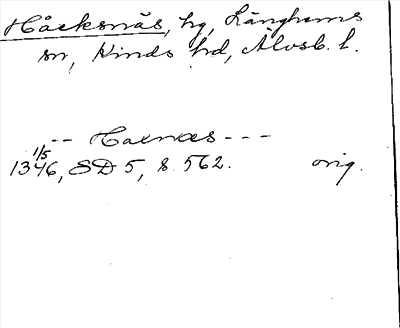 Håcksnäs, hg, Länghems
sn, Kinds hd, Älvsb. l.
-- Hacnæs ---
1/5
1346, SD 5, s. 562. orig.